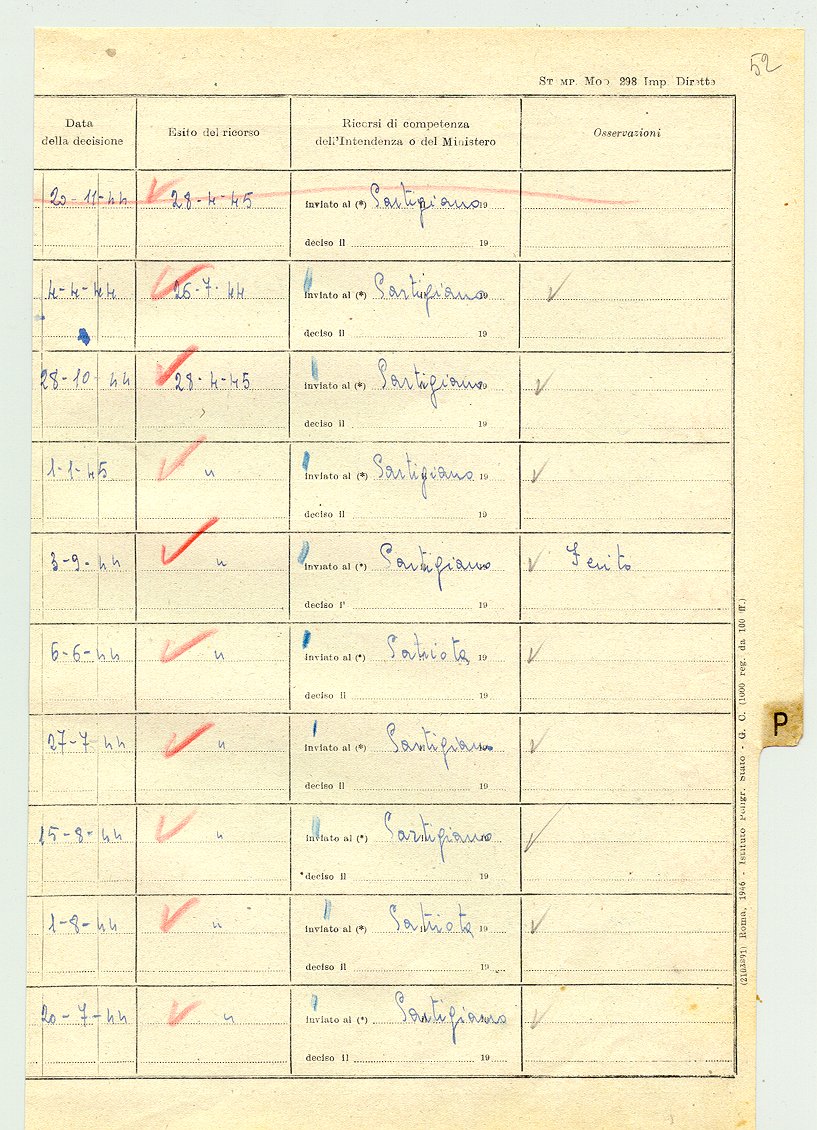 52
ST MP. MOD 298 Imp. Dirette
Data della decisione
Esito del ricorso
Ricorsi di competenza dell'Intendenza o del Ministero
Osservazioni
20-11-44 28-4-45 inviato al (*) Partigiano 19
deciso il 19
4-4-44 26-7-44 inviato al (*) Partigiano 19
deciso il 19
28-10-44 28-4-45 inviato al (*) Partigiano 19
deciso il 19
1-1-45 " inviato al (*) Partigiano 19
deciso il 19
3-9-44 " inviato al (*) Partigiano Ferito
deciso il 19
6-6-44 " inviato al (*) Patriota 19
deciso il 19
27-7-44 " inviato al (*) Partigiano
deciso il 19
15-8-44 " inviato al (*) Partigiano
deciso il 19
1-8-44 " inviato al (*) Patriota 19
deciso il 19
20-7-44 " inviato al (*) Partigiano
deciso il 19
(2103891) Roma, 1946 - Istituto Poligr. Stato - G. C. (1000 reg. da 100 ff.)
P